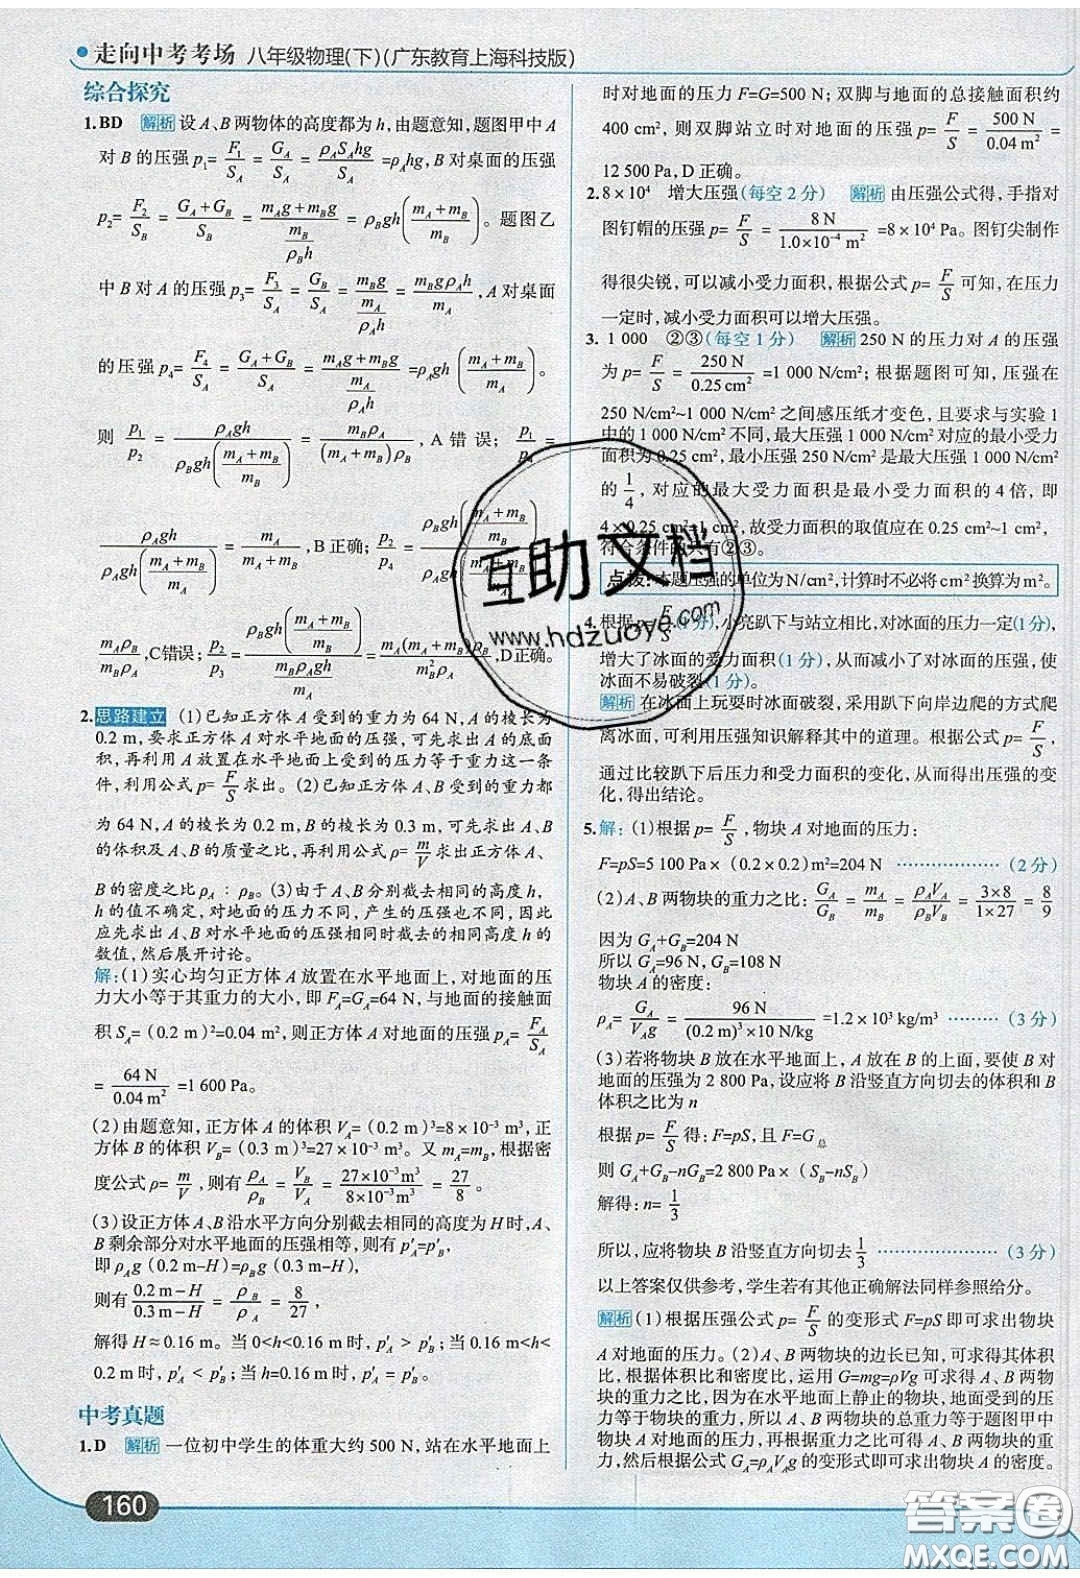 走向中考考场 八年级物理(下)(广东教育上海科技版)
综合探究
1.BD 解析 设A、B两物体的高度都为h,由题意知,题图甲中A
对B的压强p₁=F₁/S_A=G_A/S_A=ρ_A S_A hg/S_A=ρ_A hg,B对桌面的压强
p₂=F₂/S_B=(G_A+G_B)/S_B=(m_A g+m_B g)/(m_B/(ρ_B h))=ρ_B gh((m_A+m_B)/m_B)。题图乙
中B对A的压强p₃=F₃/S_A=G_B/S_A=m_B g/(m_A/(ρ_A h))=m_B gρ_A h/m_A,A对桌面
的压强p₄=F₄/S_A=(G_A+G_B)/S_A=(m_A g+m_B g)/(m_A/(ρ_A h))=ρ_A gh((m_A+m_B)/m_A)。
则 p₁/p₂=ρ_A gh/(ρ_B gh((m_A+m_B)/m_B))=m_B ρ_A/((m_A+m_B)ρ_B),A错误;p₁/p₄=
ρ_A gh/(ρ_A gh((m_A+m_B)/m_A))=m_A/(m_A+m_B),B正确;p₂/p₄=ρ_B gh((m_A+m_B)/m_B)
m_A ρ_B/(m_B ρ_A),C错误;p₂/p₃=ρ_B gh((m_A+m_B)/m_B)/(m_B ρ_A gh/m_A)=m_A(m_A+m_B)ρ_B/(m_B²ρ_A),D正确。
2.思路建立 (1)已知正方体A受到的重力为64 N,A的棱长为
0.2 m,要求正方体A对水平地面的压强,可先求出A的底面
积,再利用A放置在水平地面上受到的压力等于重力这一条
件,利用公式p=F/S求出。(2)已知正方体A、B受到的重力都
为64 N,A的棱长为0.2 m,B的棱长为0.3 m,可先求出A、B
的体积及A、B的质量之比,再利用公式ρ=m/V求出正方体A、
B的密度之比ρ_A:ρ_B。(3)由于A、B分别截去相同的高度h,
h的值不确定,对地面的压力不同,产生的压强也不同,因此
应先求出A、B对水平地面的压强相同时截去的相同高度h的
数值,然后展开讨论。
解:(1)实心均匀正方体A放置在水平地面上,对地面的压
力大小等于其重力的大小,即F_A=G_A=64 N,与地面的接触面
积S_A=(0.2 m)²=0.04 m²,则正方体A对地面的压强p_A=F_A/S_A
=64 N/0.04 m²=1 600 Pa。
(2)由题意知,正方体A的体积V_A=(0.2 m)³=8×10⁻³ m³,正
方体B的体积V_B=(0.3 m)³=27×10⁻³ m³。又m_A=m_B,根据密
度公式ρ=m/V,则有ρ_A/ρ_B=V_B/V_A=27×10⁻³m³/8×10⁻³m³=27/8。
(3)设正方体A、B沿水平方向分别截去相同的高度为H时,A、
B剩余部分对水平地面的压强相等,则有p′_A=p′_B,
即ρ_A g(0.2 m-H)=ρ_B g(0.3 m-H),
则有(0.2 m-H)/(0.3 m-H)=ρ_B/ρ_A=8/27,
解得H≈0.16 m。当0<h<0.16 m时,p′_A>p′_B;当0.16 m<h<
0.2 m时,p′_A<p′_B;当h=0.16 m时,p′_A=p′_B。
中考真题
1.D 解析 一位初中学生的体重大约500 N,站在水平地面上
时对地面的压力F=G=500 N;双脚与地面的总接触面积约
400 cm²,则双脚站立时对地面的压强p=F/S=500 N/0.04 m²=
12 500 Pa,D正确。
2.8×10⁴ 增大压强(每空2分) 解析 由压强公式得,手指对
图钉帽的压强p=F/S=8 N/(1.0×10⁻⁴ m²)=8×10⁴ Pa。图钉尖制作
得很尖锐,可以减小受力面积,根据公式p=F/S可知,在压力
一定时,减小受力面积可以增大压强。
3. 1 000 ②③(每空1分) 解析 250 N的压力对A的压强
为p=F/S=250 N/0.25 cm²=1 000 N/cm²;根据题图可知,压强在
250 N/cm²~1 000 N/cm²之间感压纸才变色,且要求与实验1
中的1 000 N/cm²不同,最大压强1 000 N/cm²对应的最小受力
面积为0.25 cm²,最小压强250 N/cm²是最大压强1 000 N/cm²
的1/4,对应的最大受力面积是最小受力面积的4倍,即
4×0.25 cm²=1 cm²,故受力面积的取值应在0.25 cm²~1 cm²,
符合条件的只有②③。
点拨:本题压强的单位为N/cm²,计算时不必将cm²换算为m²。
4.根据p=F/S(1分),小亮趴下与站立相比,对冰面的压力一定(1分),
增大了冰面的受力面积(1分),从而减小了对冰面的压强,使
冰面不易破裂(1分)。
解析 在冰面上玩耍时冰面破裂,采用趴下向岸边爬的方式爬
离冰面,可利用压强知识解释其中的道理。根据公式p=F/S,
通过比较趴下后压力和受力面积的变化,从而得出压强的变
化,得出结论。
5.解:(1)根据p=F/S,物块A对地面的压力:
F=pS=5 100 Pa×(0.2×0.2)m²=204 N ………………(2分)
(2)A、B两物块的重力之比:G_A/G_B=m_A/m_B=ρ_A V_A/ρ_B V_B=3×8/1×27=8/9
因为G_A+G_B=204 N
所以G_A=96 N,G_B=108 N
物块A的密度:
ρ_A=G_A/V_A g=96 N/((0.2 m)³×10 N/kg)=1.2×10³ kg/m³ ………(3分)
(3)若将物块B放在水平地面上,A放在B的上面,要使B对
地面的压强为2 800 Pa,设应将B沿竖直方向切去的体积和B
体积之比为n
根据p=F/S得:F=pS,且F=G总
则G_A+G_B-nG_B=2 800 Pa×(S_B-nS_B)
解得:n=1/3
所以,应将物块B沿竖直方向切去1/3 ……………………(3分)
以上答案仅供参考,学生若有其他正确解法同样参照给分。
解析 (1)根据压强公式p=F/S的变形式F=pS即可求出物块
A对地面的压力。(2)A、B两物块的边长已知,可求得其体积
比,根据体积比和密度比,运用G=mg=ρVg可求得两物块
的重力之比,因为在水平地面上静止的物块,地面受到的压
力等于物块的重力,所以A、B两物块的总重力等于题图甲中
物块A对地面的压力,再根据重力之比可求得物块A的重
力,然后根据公式G_A=ρ_A V_A g的变形式即可求出物块A的密度。
160
互助文档
www.hdzuoye.com
答案圈
MXQE.COM